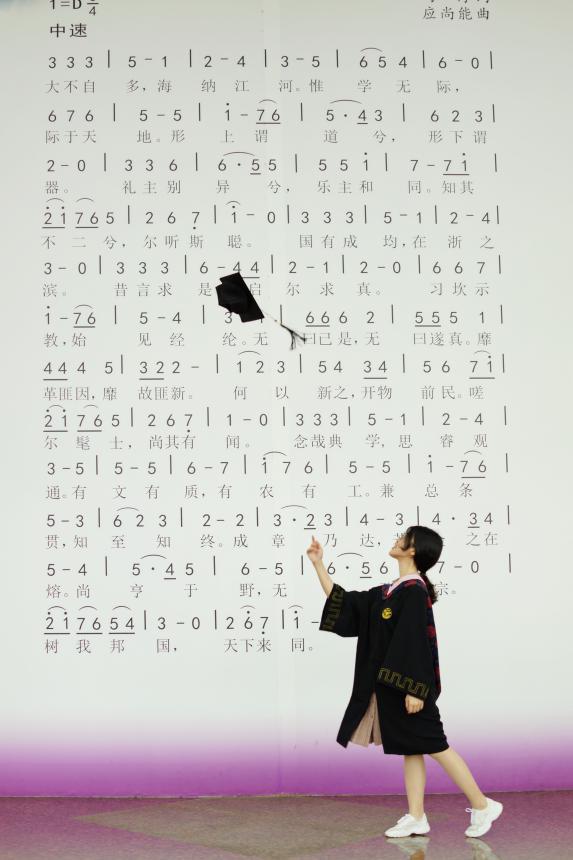 1=D 3/4
应尚能曲
中速
3 3 3 | 5 - 1 | 2 - 4 | 3 - 5 | 6 5 4 | 6 - 0 |
大不自 多，海 纳 江 河。惟 学 无 际，
6 7 6 | 5 - 5 | i - 7 6 | 5 · 4 3 | 6 2 3 |
际于天 地。形 上 谓 道 兮， 形下谓
2 - 0 | 3 3 6 | 6 · 5 5 | 5 5 i | 7 - 7 i |
器。 礼 主 别 异 兮， 乐 主 和 同。知其
2 i 7 6 5 | 2 6 7 | i - 0 | 3 3 3 | 5 - 1 | 2 - 4 |
不 二 兮，尔 听 斯 聪。 国 有 成 均，在 浙 之
3 - 0 | 3 3 3 | 6 - 4 4 | 2 - 1 | 2 - 0 | 6 6 7 |
滨。 昔 言 求 是 启 尔 求 真。 习 坎 示
i - 7 6 | 5 - 4 | 3 - | 6 6 6 2 | 5 5 5 1 |
教，始 见 经 纶。无 曰已是，无 曰遂真。靡
4 4 4 5 | 3 2 2 - | 1 2 3 | 5 4 3 4 | 5 6 7 i |
革匪因，靡 故匪新。 何 以 新之，开物 前民。嗟
2 i 7 6 5 | 2 6 7 | 1 - 0 | 3 3 3 | 5 - 1 | 2 - 4 |
尔 髦 士，尚其有 闻。 念哉典 学，思 睿 观
3 - 5 | 5 - 5 | 6 - 7 | i 7 6 | 5 - 5 | i - 7 6 |
通。有 文 有 质，有 农 有 工。兼 总 条
5 - 3 | 6 2 3 | 2 - 2 | 3 · 2 3 | 4 - 3 | 4 · 3 4 |
贯，知 至 知 终。成 章 乃 达， 之在
5 - 4 | 5 · 4 5 | 6 - 5 | 6 · 5 6 | 7 - 0 |
熔。尚 亨 于 野，无 宗。
2 i 7 6 5 4 | 3 - 0 | 2 6 7 | i -
树 我 邦 国， 天下来 同。